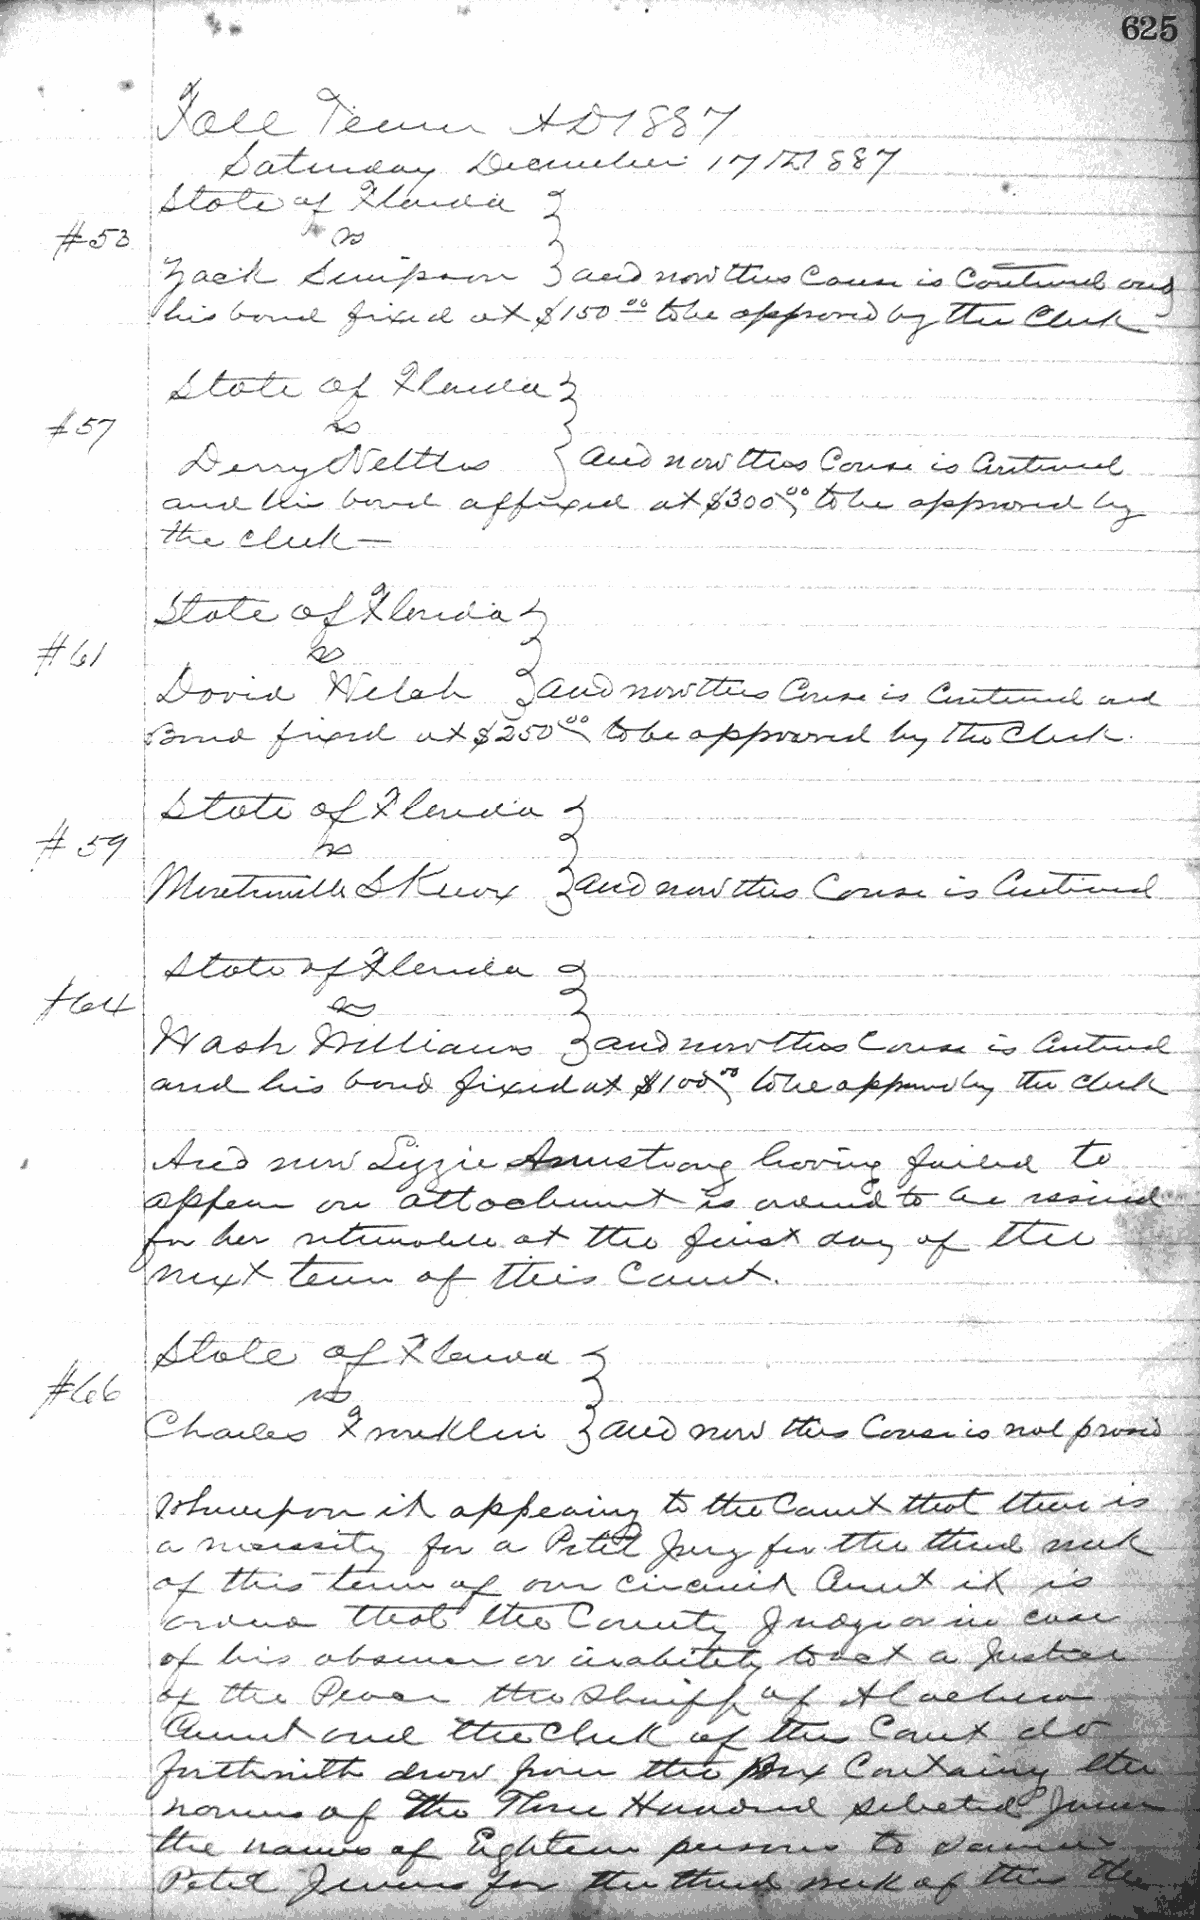 625
Fall Term AD 1887
Saturday December 17th 1887
State of Florida
#53 vs
Zack Simpson and now this Cause is Continued and
his bond fixed at $150 00 to be approved by the Clerk
State of Florida
#57 vs
Derry Nettles and now this Cause is Continued
and his bond affixed at $300 00 to be approved by
the Clerk —
State of Florida
#61 vs
David Welch and now this Cause is Continued and
Bond fixed at $250 00 to be approved by the Clerk.
State of Florida
#59 vs
S Knox and now this Cause is Continued
State of Florida
#64 vs
Wash Williams and now this Cause is Continued
and his bond fixed at $100 00 to be approved by the Clerk
And now Lizzie Armstrong having failed to
appear an attachment is ordered to be issued
for her returnable at the first day of the
next term of this Court.
State of Florida
#66 vs
Charles Franklin and now this Cause is nol prosed
Whereupon it appearing to the Court that there is
a necessity for a Petit Jury for the third week
of this term of our circuit Court it is
order that the County Judge or in case
of his absence or inability to act a Justice
of the Peace the Sheriff of Alachua
County and the Clerk of the Court do
forthwith draw from the Box Containing the
names of the Three Hundred selected Jurors
the names of Eighteen persons to serve as
Petit Jurors for the third week of this the